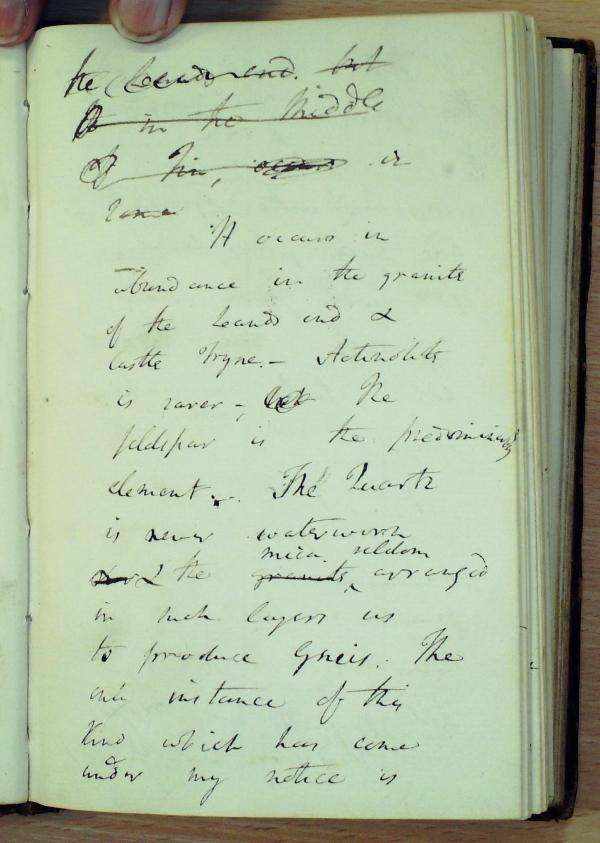 the Lands end. but
it in the Middle
of Tin, occurs in
some
It occurs in
abundance in the granite
of the Lands end &
Castle Tryne. - Actinolite
is rarer -, but The
feldspar is the predominating
element. - The Quartz
is never waterworn
mica seldom
& the granite, arranged
in such layers as
to produce Gneis. The
only instance of this
kind which has come
under my notice is